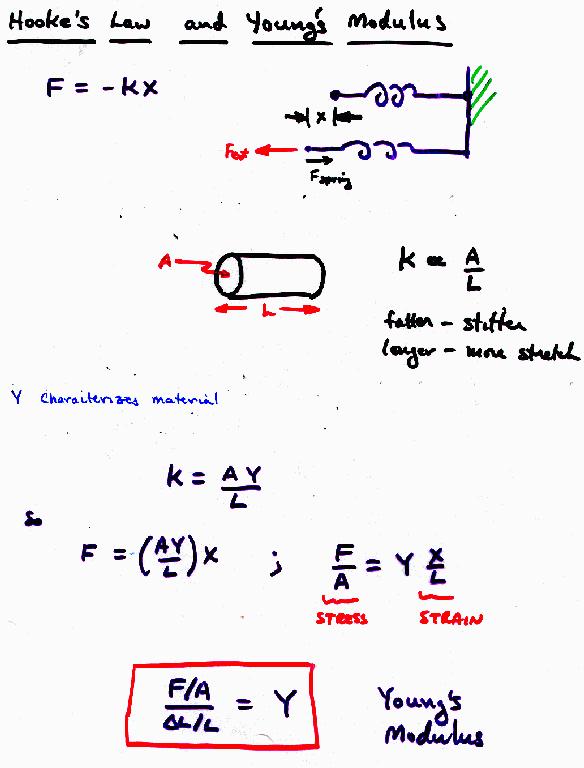 Hooke's Law and Young's Modulus
F = -kx
x
Fext
Fspring
A
L
k ∝ A/L
fatter - stiffer
longer - more stretch
Y characterizes material
k = AY/L
So
F = (AY/L) x ; F/A = Y x/L
STRESS STRAIN
(F/A)/(ΔL/L) = Y Young's
Modulus